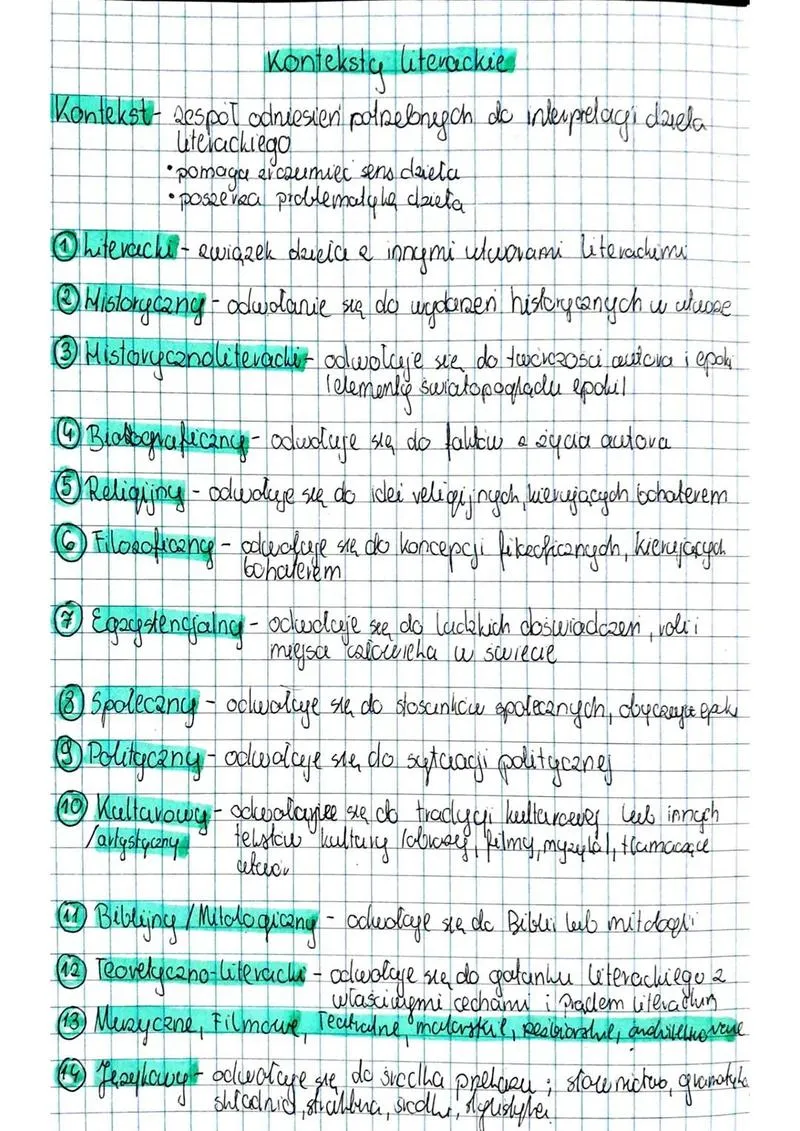 Konteksty literackie
Kontekst - zespół odniesień potrzebnych do interpretacji dzieła
literackiego
• pomaga zrozumieć sens dzieła
• poszerza problematykę dzieła
① Literacki - związek dzieła z innymi utworami literackimi
② Historyczny - odwołanie się do wydarzeń historycznych w utworze
③ Historycznoliteracki - odwołuje się do twórczości autora i epoki
(elementy światopoglądu epoki)
④ Biograficzny - odwołuje się do faktów z życia autora
⑤ Religijny - odwołuje się do idei religijnych, kierujących bohaterem
⑥ Filozoficzny - odwołuje się do koncepcji filozoficznych, kierujących
bohaterem
⑦ Egzystencjalny - odwołuje się do ludzkich doświadczeń, roli i
miejsca człowieka w świecie
⑧ Społeczny - odwołuje się do stosunków społecznych, obyczaje epoki
⑨ Polityczny - odwołuje się do sytuacji politycznej
⑩ Kulturowy - odwołujące się do tradycji kulturowej lub innych
/artystyczny tekstów kultury (obrazy, filmy, muzyka), tłumaczące
utwór
⑪ Biblijny / Mitologiczny - odwołuje się do Biblii lub mitologii
⑫ Teoretyczno-literacki - odwołuje się do gatunku literackiego z
właściwymi cechami i prądem literackim
⑬ Muzyczne, Filmowe, Teatralne, malarskie, rzeźbiarskie, architektoniczne
⑭ Językowy - odwołuje się do środka przekazu; słownictwo, gramatyka
składnia, struktura, środki, stylistyka